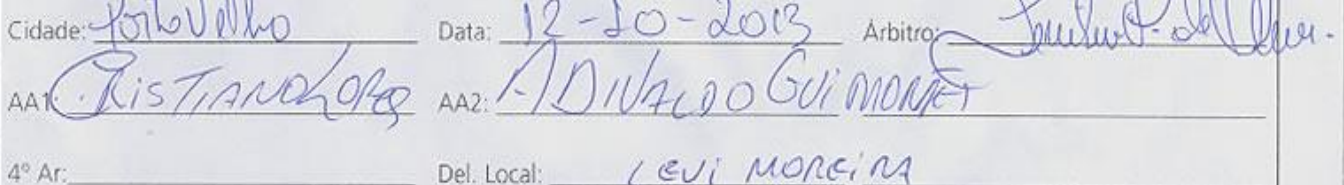 Cidade: Porto Velho Data: 12-10-2013 Árbitro:
AA1: CRISTIANO LOPES AA2: ADIVALDO GUIMO
4º Ar: Del. Local: LEVI MOREIRA